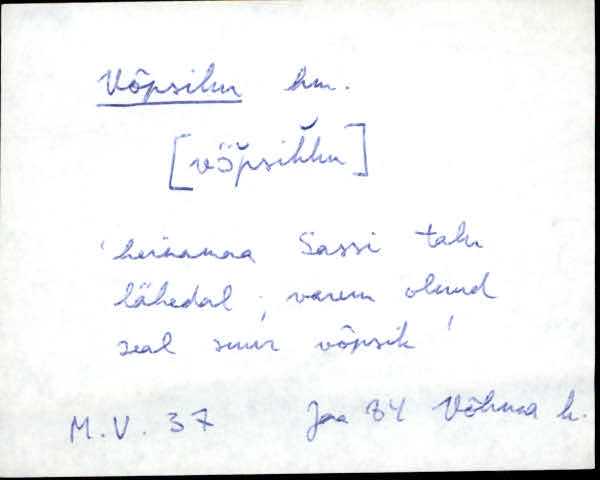 Võpsiku hm.
[vö̆psikku]
'heinamaa Sassi talu
lähedal; varem olnud
seal suur võpsik'
M.V. 37 Jaa 84 Võhma k.